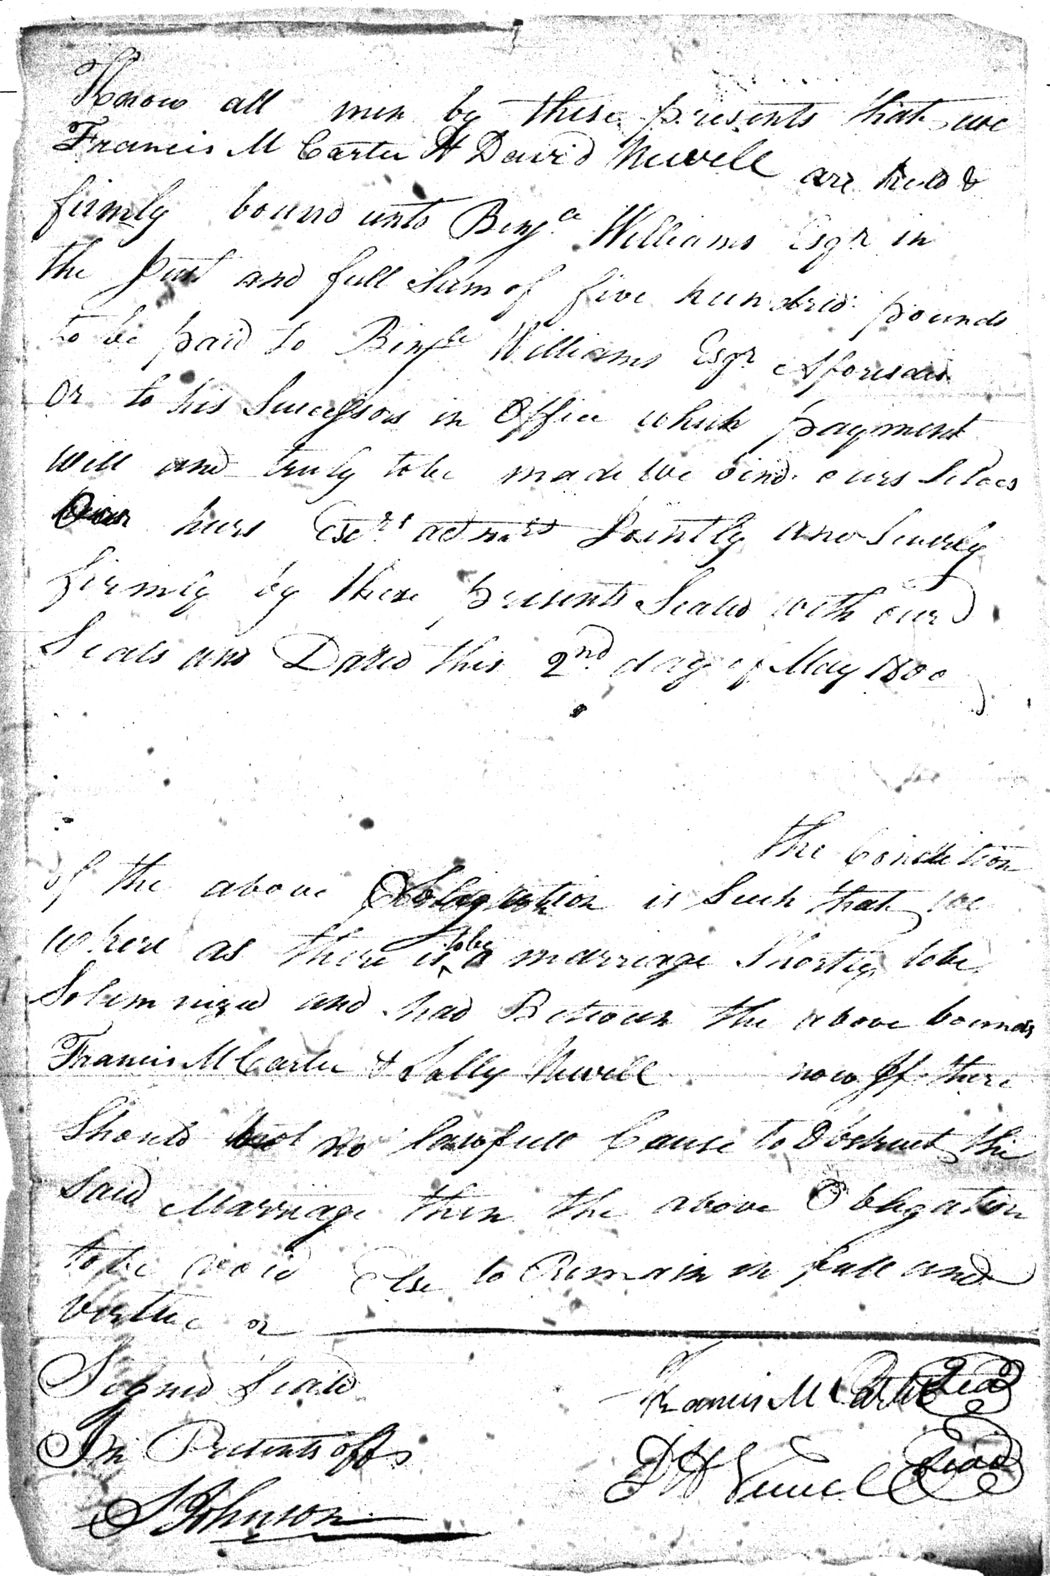 Know all men by these presents that we
Francis M Carter & David Newell are held &
firmly bound unto Benja Williams Esqr in
the Just and full Sum of five hundred pounds
to be paid to Benja Williams Esqr Aforesaid
or to his Successors in Office which payment
will and truly to be made we bind ours Selves
Our heirs Exers admrs Jointly and Severly
firmly by these presents Seald with our
Seals and Dated this 2nd day of May 1800
the Condition
of the above Obligation is Such that we
where as there is to be a marriage Shortly to be
Solemnized and had Between the above bounds
Francis M Carter & Sally Newell now If there
Should be no lawfull Cause to Obstruct the
Said Marriage then the above Obligation
to be void Else to Remain in full and
virtue or
Signed Seald
In Presents off
S Johnson
Francis M Carter Seal
D H Newel Seal